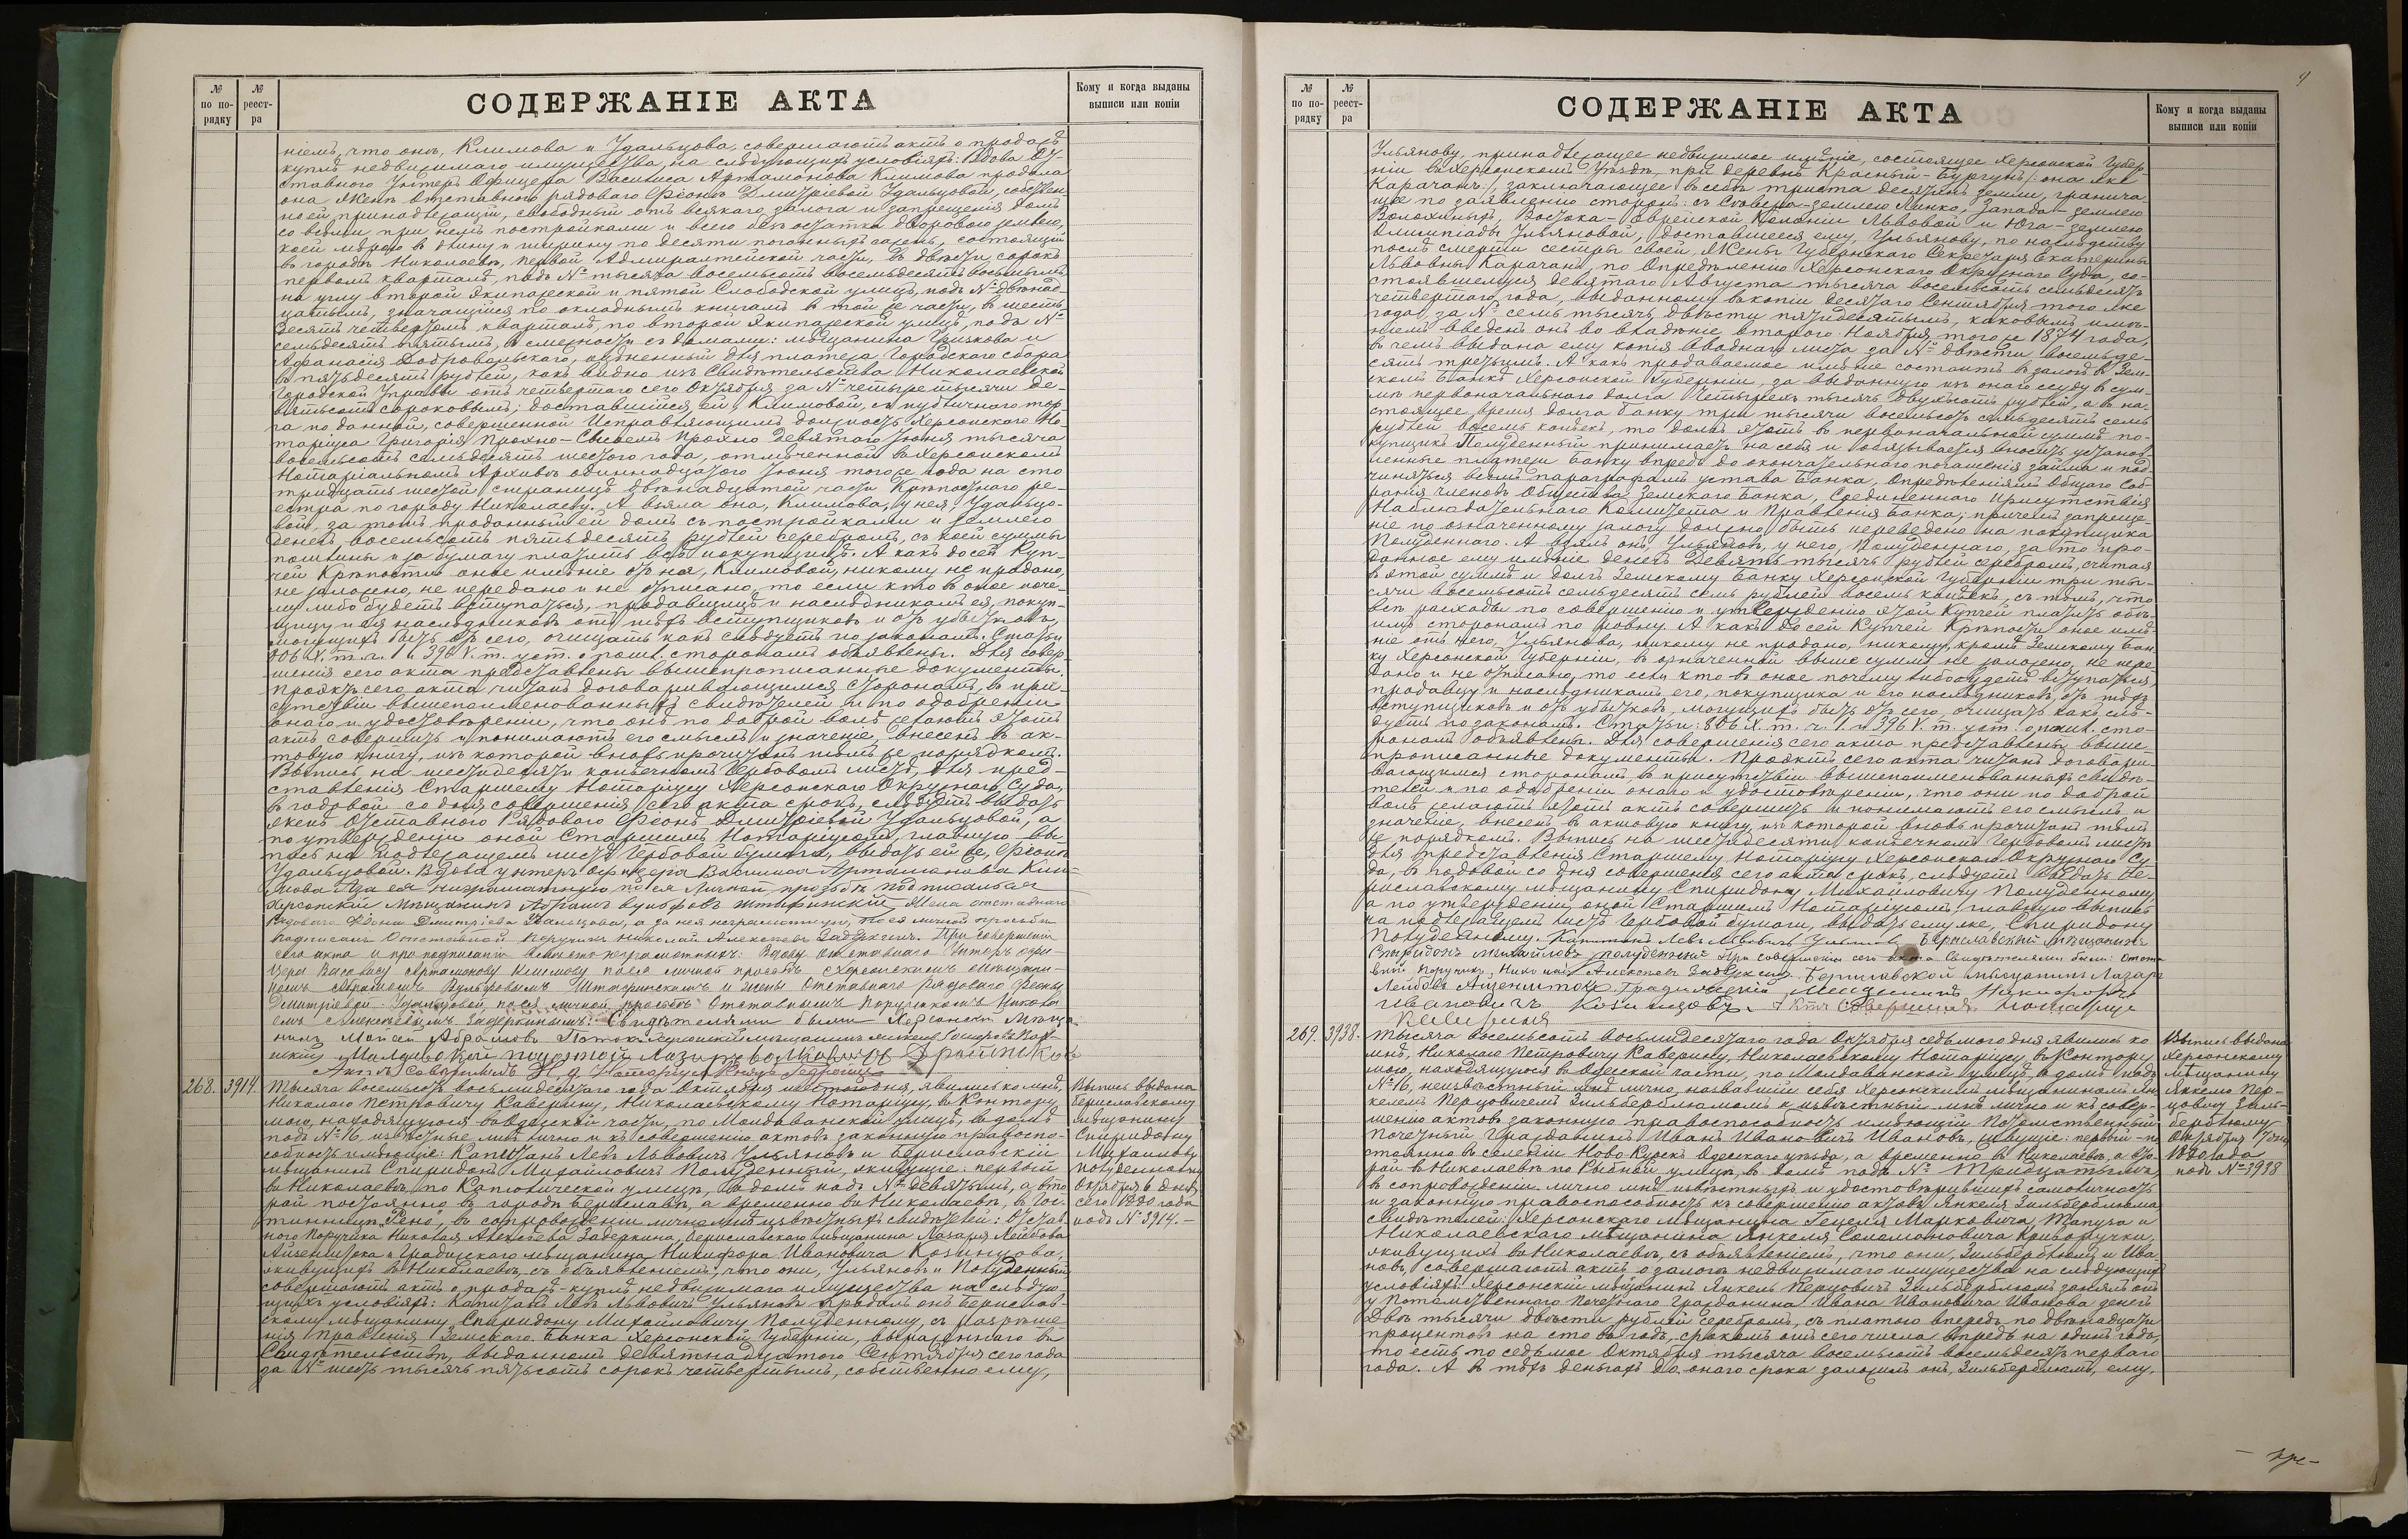 № по по-рядку
№ реест-ра
СОДЕРЖАНІЕ АКТА
Кому и когда выданы выписи или копіи
ніемъ, что онѣ, Климова и Удальцова, совершаютъ актъ о продажѣ
куплѣ недвижимаго имущества, на слѣдующихъ условіяхъ: Вдова От-
ставного Унтеръ Офицера Василиса Артамонова Климова продала
она женѣ Отставного рядоваго Ѳеонѣ Дмитріевой Удальцовой, собствен-
но ей принадлежащій, свободный отъ всякаго залога и запрещенія домъ
со всѣми при немъ постройками и всего безъ остатка дворовою землею,
коей мѣрою в длину и ширину по десяти погонныхъ сажень, состоящій
въ городѣ Николаевѣ, первой Адмиралтейской части, въ двѣсти сорокъ
первомъ кварталѣ, подъ № тысяча восемьсотъ восемьдесятъ восьмымъ,
на углу второй Экипажеской и пятой Слободской улицъ, подъ № двѣнад-
цатымъ, значащійся по окладнымъ книгамъ в той же части, в шесть-
десятъ четвертомъ кварталѣ, по второй Экипажеской улицѣ, подъ №
семьдесятъ пятымъ, в смежности съ домами: мѣщанина Грикова и
Афанасія Добровольскаго, оцѣненный для платежа Городскаго сбора
в пятьдесятъ рублей, какъ видно изъ Свидѣтельства Николаевской
Городской Управы отъ четвертаго сего Октября за № четыре тысячи де-
вятьсотъ сороковымъ; доставшійся ей, Климовой, съ публичнаго тор-
га по данной, совершенной Исправляющимъ должность Херсонскаго Но-
таріуса Григорія Прохно-Свивелъ Прохно девятаго Іюня тысяча
восемьсотъ семьдесятъ шестого года, отмѣченной в Херсонскомъ
Нотаріальномъ Архивѣ одиннадцатого Іюня того же года на сто
тридцать шестой страницѣ двѣнадцатой части Крѣпостнаго ре-
естра по городу Николаеву. А взяла она, Климова, у нея, Удальцо-
вой, за тотъ проданный ей домъ съ постройками и землею
денегъ восемьсотъ пятьдесятъ рублей серебромъ, съ коей суммы
пошлины и за бумагу платитъ всѣ покупщица. А какъ до сей Куп-
чей Крѣпости оное имѣніе отъ нея, Климовой, никому не продано,
не заложено, не передано и не отписано, то если кто в оное поче-
му либо будетъ вступаться, продавицѣ и наслѣдникамъ ея, покуп-
щицу и ея наслѣдниковъ отъ тѣхъ вступщиковъ и отъ убытковъ,
могущихъ быть отъ сего, очищать какъ слѣдуетъ по законамъ. Статьи
806 X. т. ч. 1 и 396 V. т. уст. о пошл. сторонамъ объявлены. Для совер-
шенія сего акта представлены вышепрописанные документы.
Проэктъ сего акта читанъ договаривающимся сторонамъ, в при-
сутствіи вышепоименованныхъ свидѣтелей и по одобреніи
онаго и удостовѣреніи, что онѣ по доброй волѣ желаютъ этотъ
актъ совершить и понимаютъ его смыслъ и значеніе, внесенъ в ак-
товую книгу, изъ которой вновь прочитанъ тѣмъ же порядкомъ.
Выпись на шестидесяти копѣечномъ Гербовомъ листѣ, для пред-
ставленія Старшему Нотаріусу Херсонскаго Окружнаго Суда,
в годовой со дня совершенія сего акта срокъ, слѣдуетъ выдать
женѣ Отставного Рядоваго Ѳеонѣ Дмитріевой Удальцовой, а
по утвержденіи оной Старшимъ Нотаріусомъ, главную вы-
пись на подлежащемъ листѣ Гербовой бумаги, выдать ей же, Ѳеонѣ
Удальцовой. Вдова унтеръ Офицера Василиса Артамонова Кли-
мова А за ея неграмотную по ея личной прозьбѣ подписалъся
Херсонскій Мѣщанинъ Абрамъ Вульфовъ Штифинскій. Жена отставнаго
Рядоваго Ѳеона Дмитріева Удальцова, а за нея неграмотную, по ея личной просьбѣ
подписалъ Отставной Поручикъ Николай Алексѣевъ Задеркинъ. При совершеніи
сего акта и при подписаніи вмѣсто неграмотныхъ: Вдову отставнаго Унтеръ офи-
цера Василису Артамонову Климову после личной просьбѣ Херсонскимъ мѣщани-
номъ Абрамомъ Вульфовымъ Штифинскимъ и жены Отставнаго рядоваго Ѳеоны
Дмитріевой Удальцовой, по ея личной просьбѣ Отставнымъ Поручикомъ Никола-
емъ Алексѣевымъ Задеркинымъ. Свидѣтелями были Херсонскій Мѣща-
нинъ Мойсей Абрамовъ
Актъ совершилъ И. д. Нотаріуса
268. 3914. Тысяча восемьсотъ восьмидесятаго года Октября шестого дня, явились ко мнѣ,
Николаю Петровичу Каверину, Николаевскому Нотаріусу, в Контору
мою, находящуюся в Одесской части, по Молдаванской улицѣ, в домѣ
подъ № 16, извѣстные мнѣ лично и къ совершенію актовъ законную правоспо-
собность имѣющіе: Капитанъ Левъ Львовичъ Ульяновъ и Бериславскій
мѣщанинъ Спиридонъ Михайловичъ Полуденный, живущіе: первый
в Николаевѣ, по Католической улицѣ, в домѣ подъ № девятымъ, а вто-
рой постоянно въ городѣ Бериславѣ, а временно въ Николаевѣ, в гос-
тинницѣ „Рено“, въ сопровожденіи лично мнѣ извѣстныхъ свидѣтелей: Отстав-
ного Поручика Николая Алексѣева Задеркина, Бериславскаго мѣщанина Лазаря Лейбова
Айзенштока и Градижскаго мѣщанина Никифора Ивановича Козинцова,
живущихъ в Николаевѣ, съ объявленіемъ, что они, Ульяновъ и Полуденный
совершаютъ актъ о продажѣ-куплѣ недвижимаго имущества на слѣдую-
щихъ условіяхъ: Капитанъ Левъ Львовичъ Ульяновъ продалъ онъ Берислав-
скому мѣщанину Спиридону Михайловичу Полуденному, съ разрѣше-
нія Правленія Земскаго Банка Херсонской Губерніи, выраженнаго в
Свидѣтельствѣ, выданномъ девятнадцатого Сентября сего года
за № шесть тысячъ пятьсотъ сорокъ четвертымъ, собственно ему,
Выпись выдана
Бериславскому
мѣщанину
Спиридону
Михайлову
Полуденному
Октября 6 дня
сего 1880 года
подъ № 3914. —
№ по по-рядку
№ реест-ра
СОДЕРЖАНІЕ АКТА
Кому и когда выданы выписи или копіи
Ульянову, принадлежащее недвижимое имѣніе, состоящее Херсонской Губер-
ніи в Херсонскомъ Уѣздѣ, при деревнѣ Красный-Бургунъ /: она же
Карачанъ:/, заключающее в себѣ триста десятинъ земли, гранича-
щее по заявленію сторонъ: съ Сѣвера-землею Линко, Запада-землею
Волохиныхъ, Востока-Еврейской Колоніи Львовой и Юга-землею
Олимпіады Ульяновой, доставшееся ему, Ульянову, по наслѣдству
послѣ смерти сестры своей, жены Губернскаго Секретаря Екатерины
Львовны Карачанъ, по Опредѣленію Херсонскаго Окружнаго Суда, со-
стоявшемуся девятаго Августа тысяча восемьсотъ семьдесятъ
четвертаго года, выданному в копіи десятаго Сентября того же
года за № семь тысячъ двѣсти пятидесятымъ, каковымъ имѣ-
ніемъ введенъ онъ во владѣніе второго Ноября того же 1874 года,
в чемъ выдана ему копія вводнаго листа за № двѣсти восемьде-
сятъ третьимъ. А какъ продаваемое имѣніе состоитъ в залогѣ в Зем-
скомъ Банкѣ Херсонской Губерніи, за выданную изъ онаго ссуду в сум-
мѣ первоначальнаго долга четырехъ тысячъ двухсотъ рублей, а в на-
стоящее время долга банку три тысячи восемьсотъ семьдесятъ семь
рублей восемь копѣекъ, то долгъ этотъ в первоначальной суммѣ по-
купщикъ Полуденный принимаетъ на себя и обязывается вносить установ-
ленные платежи Банку впредь до окончательнаго погашенія займа и под-
чиняться всѣмъ параграфамъ устава Банка, опредѣленіямъ Общаго Соб-
ранія членовъ Общества Земскаго Банка, Соединеннаго Присутствія
Наблюдательнаго Комитета и Правленія Банка; причемъ запреще-
ніе по означенному залогу должно быть переведено на покупщика
Полуденнаго. А взялъ онъ, Ульяновъ, у него, Полуденнаго, за то про-
данное ему имѣніе денегъ Девять тысячъ рублей серебромъ, считая
в этой суммѣ и долгъ Земскому Банку Херсонской Губерніи три ты-
сячи восемьсотъ семьдесятъ семь рублей восемь копѣекъ, съ тѣмъ, что
всѣ расходы по совершенію и утвержденію этой Купчей платятъ обѣ-
имъ сторонамъ по ровну. А какъ до сей Купчей Крѣпости оное имѣ-
ніе отъ него, Ульянова, никому не продано, никому, кромѣ Земскому Бан-
ку Херсонской Губерніи, в означенной выше суммѣ не заложено, не пере-
дано и не отписано, то если кто в оное почему либо будетъ вступаться,
продавцу и наслѣдникамъ его, покупщика и его наслѣдниковъ отъ тѣхъ
вступщиковъ и отъ убытковъ, могущихъ быть отъ сего, очищать какъ слѣ-
дуетъ по законамъ. Статьи: 806 X. т. ч. 1. и 396 V. т. уст. о пошл. сто-
ронамъ объявлены. Для совершенія сего акта представлены выше-
прописанные документы. Проэктъ сего акта читанъ договари-
вающимся сторонамъ, в присутствіи вышепоименованныхъ свидѣ-
телей и по одобреніи онаго и удостовѣреніи, что они по доброй
волѣ желаютъ этотъ актъ совершить и понимаютъ его смыслъ и
значеніе, внесенъ в актовую книгу, изъ которой вновь прочитанъ тѣмъ
же порядкомъ. Выпись на шестидесяти копѣечномъ Гербовомъ листѣ
для представленія Старшему Нотаріусу Херсонскаго Окружнаго Су-
да, в годовой со дня совершенія сего акта срокъ, слѣдуетъ выдать Бе-
риславскому мѣщанину Спиридону Михайловичу Полуденному,
а по утвержденіи оной Старшимъ Нотаріусомъ, главную выпись
на подлежащемъ листѣ Гербовой бумаги, выдать ему же, Спиридону
Полуденному. Капитанъ Левъ Львовичъ Ульяновъ Бериславскій Мѣщанинъ
Спиридонъ Михайловъ Полуденный При совершеніи сего акта Свидѣтелями были: Отстав-
ной Поручикъ, Николай Алексѣевъ Задеркинъ. Бериславской мѣщанинъ Лазарь
Лейбовъ Айзенштокъ. Градижскій мѣщанинъ Никифоръ
Ивановичъ Козинцовъ. Актъ совершилъ Нотаріусъ
Каверинъ
269. 3938. Тысяча восемьсотъ восьмидесятаго года Октября седьмого дня явились ко
мнѣ, Николаю Петровичу Каверину, Николаевскому Нотаріусу, в Контору
мою, находящуюся в Одесской части, по Молдаванской улицѣ, в домѣ подъ
№ 16, неизвѣстный мнѣ лично, назвавшій себя Херсонскимъ мѣщаниномъ Ян-
келемъ Перцовичемъ Зильберблюмомъ и извѣстный мнѣ лично и къ совер-
шенію актовъ законную правоспособность имѣющій Потомственный
Почетный Гражданинъ Иванъ Ивановичъ Ивановъ, живущіе: первый - по-
стоянно въ селеніи Ново Курскѣ Одесскаго уѣзда, а временно в Николаевѣ, а вто-
рой в Николаевѣ по Рыбной улицѣ, в домѣ подъ № Тридцатымъ,
в сопровожденіи лично мнѣ извѣстныхъ и удостовѣрившихъ самоличность
и законную правоспособность къ совершенію актовъ Янкеля Зильберблюма
свидѣтелей: Херсонскаго мѣщанина Гецеля Марковича Тапуза и
Николаевскаго мѣщанина Янкеля Соломоновича Криворучки,
живущихъ в Николаевѣ, съ объявленіемъ, что они, Зильберблюмъ и Ива-
новъ, совершаютъ актъ о залогѣ недвижимаго имущества на слѣдующихъ
условіяхъ: Херсонскій мѣщанинъ Янкель Перцовичъ Зильберблюмъ занялъ онъ
у Потомственнаго Почетнаго Гражданина Ивана Ивановича Иванова денегъ
Двѣ тысячи двѣсти рублей серебромъ, съ платою впередъ по двѣнадцати
процентовъ на сто въ годъ, срокомъ отъ сего числа впредь на одинъ годъ,
то есть по седьмое Октября тысяча восемьсотъ восемьдесятъ перваго
года. А в тѣхъ деньгахъ до онаго срока заложилъ онъ, Зильберблюмъ, ему,
Выпись выдана
Херсонскому
мѣщанину
Янкелю Пер-
цовичу Зиль-
берблюму
Октября 7 дня
1880 года
подъ № 3938